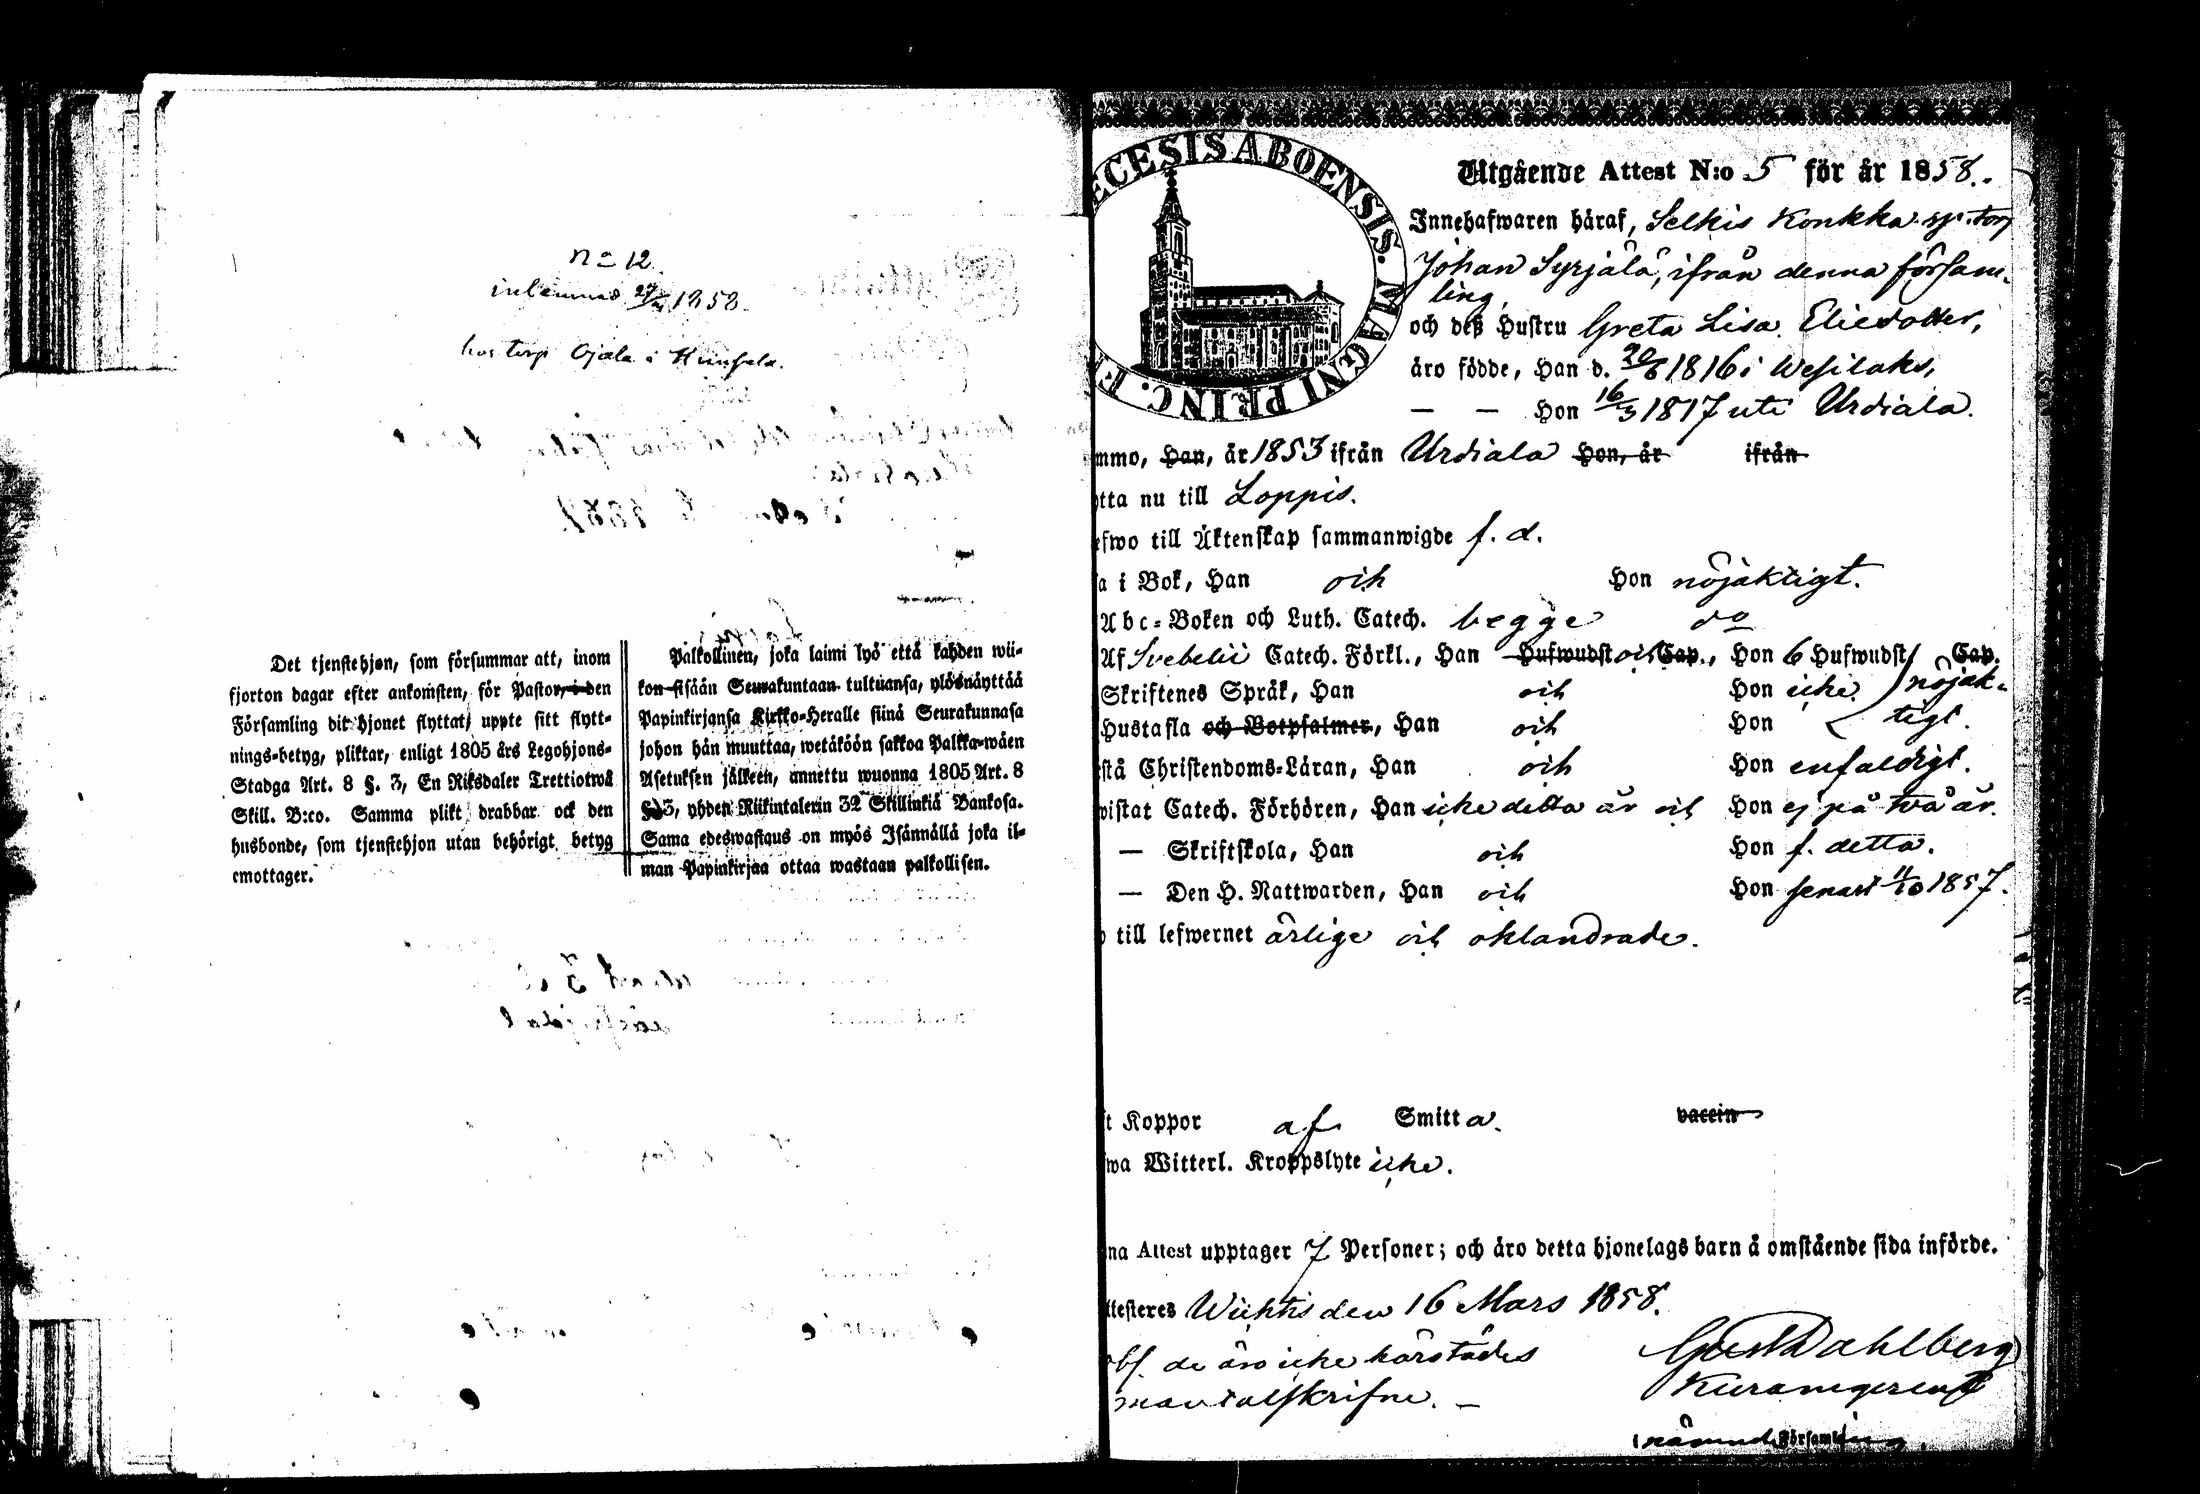 No 12.
inlemnas 27/4 1858.
hos torp Ojala i Hunsala.
Det tjenstehjon, som försummar att, inom
fjorton dagar efter ankomsten, för Pastor, i den
Församling dit hjonet flyttat, uppte sitt flytt-
nings-betyg, pliktar, enligt 1805 års Legohjons-
Stadga Art. 8 §. 3, En Riksdaler Trettiotwå
Skill. B:co. Samma plikt drabbar ock den
husbonde, som tjenstehjon utan behörigt betyg
emottager.
Palkollinen, joka laimi lyö että kahden wii-
kon sisään Seurakuntaan tultuansa, ylösnäyttää
Papinkirjansa Kirkko-Heralle siinä Seurakunnasa
johon hän muuttaa, wetäköön sakkoa Palkka-wäen
Asetuksen jälkeen, annettu wuonna 1805 Art. 8
§. 3, yhden Riikintalerin 32 Skillinkiä Bankosa.
Sama edeswastaus on myös Isännällä joka il-
man Papinkirjaa ottaa wastaan palkollisen.
ECESIS ABOENSIS. MAGNI PRINC. F
Utgående Attest N:o 5 för år 1858.
Innehafwaren häraf, Selkis Konkka sp. torp
Johan Syrjälä, ifrån denna försam-
ling,
och deß Hustru Greta Lisa Eliedotter,
äro födde, Han d. 20/6 1816 i Wesilaks,
— — Hon 16/3 1817 uti Urdiala.
mmo, Han, år 1853 ifrån Urdiala Hon, år ifrån
tta nu till Loppis.
efwo till Äktenskap sammanwigde f. d.
a i Bok, Han och Hon nöjaktigt.
Abc-Boken och Luth. Catech. begge do
Af Svebelii Catech. Förkl., Han Hufwudst och Cap., Hon 6 Hufwudst Cap.
Skriftenes Språk, Han och Hon icke nöjak-
Hustafla och Botpsalmer, Han och Hon tigt.
stå Christendoms-Läran, Han och Hon enfaldigt.
wistat Catech. Förhören, Han icke detta år och Hon ej på två år.
— Skriftskola, Han och Hon f. detta.
— Den H. Nattwarden, Han och Hon senast 11/10 1857.
till lefwernet ärlige och oklandrade.
t Koppor af Smitta. vaccin
wa Witterl. Kroppslyte icke.
na Attest upptager 7 Personer; och äro detta hjonelags barn å omstående sida införde.
ttesteres Wichtis den 16 Mars 1858.
obs. de äro icke härstädes Gust Dahlberg
mantalskrifne. —
nämnde Församling